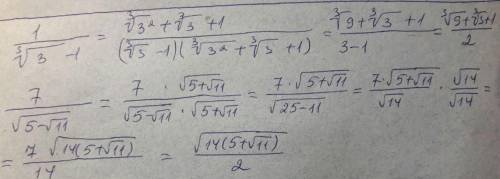 1/(∛3 -1) = (∛3² + ∛3 +1)/((∛3 -1)(∛3² + ∛3 +1)) = (∛9 + ∛3 +1)/(3-1) = (∛9+∛3+1)/2
7/√(5-√11) = (7 · √(5+√11))/(√(5-√11) · √(5+√11)) = (7 · √(5+√11))/√(25-11) = (7·√(5+√11))/√14 · √14/√14 =
= (7 √(14(5+√11)))/14 = √(14(5+√11))/2